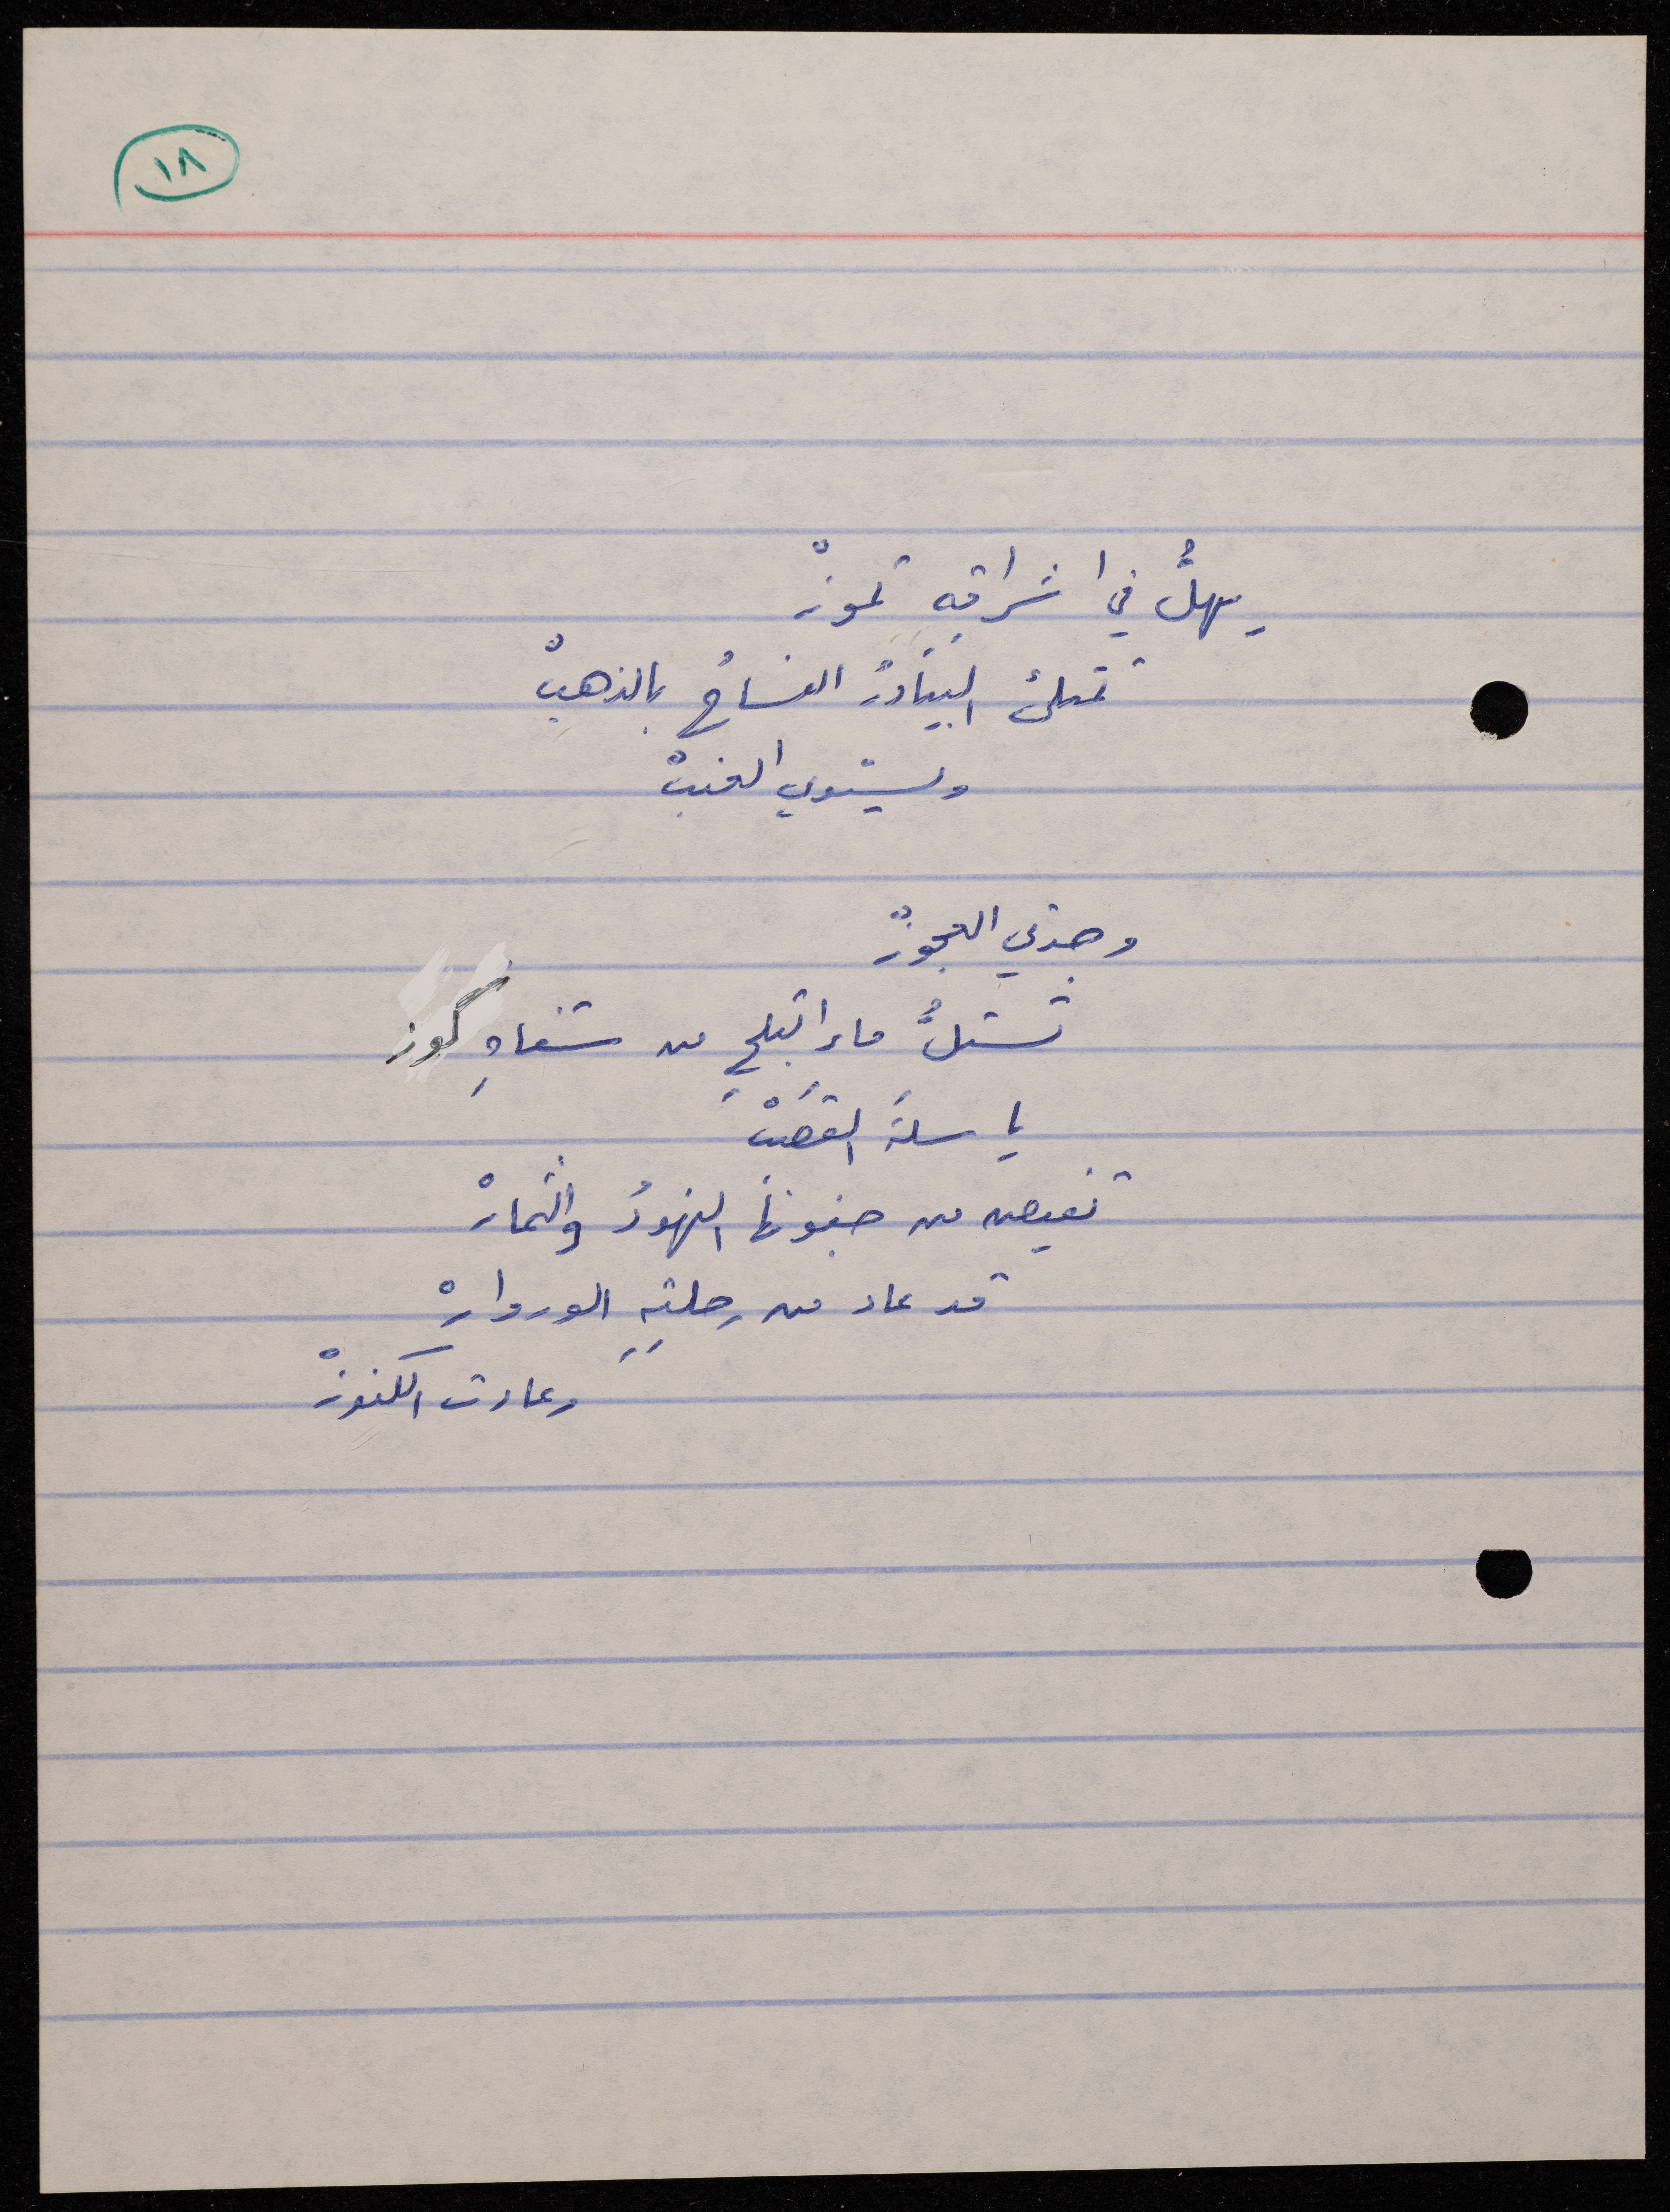 ١٨
يهلُّ في اشراقِهِ تموزْ
تمتلئُ البيادرُ الفساحُ بالذهبْ
ويستوي العنبْ
وجدتي العجوزْ
تستلُّ ماء الثلجِ من شفاهِ كوز
يا سلةَ القصَبْ
تفيض من جفونها النهودُ والثمارْ
قد عاد من رحلتِهِ الوروارْ
وعادت الكنوزْ